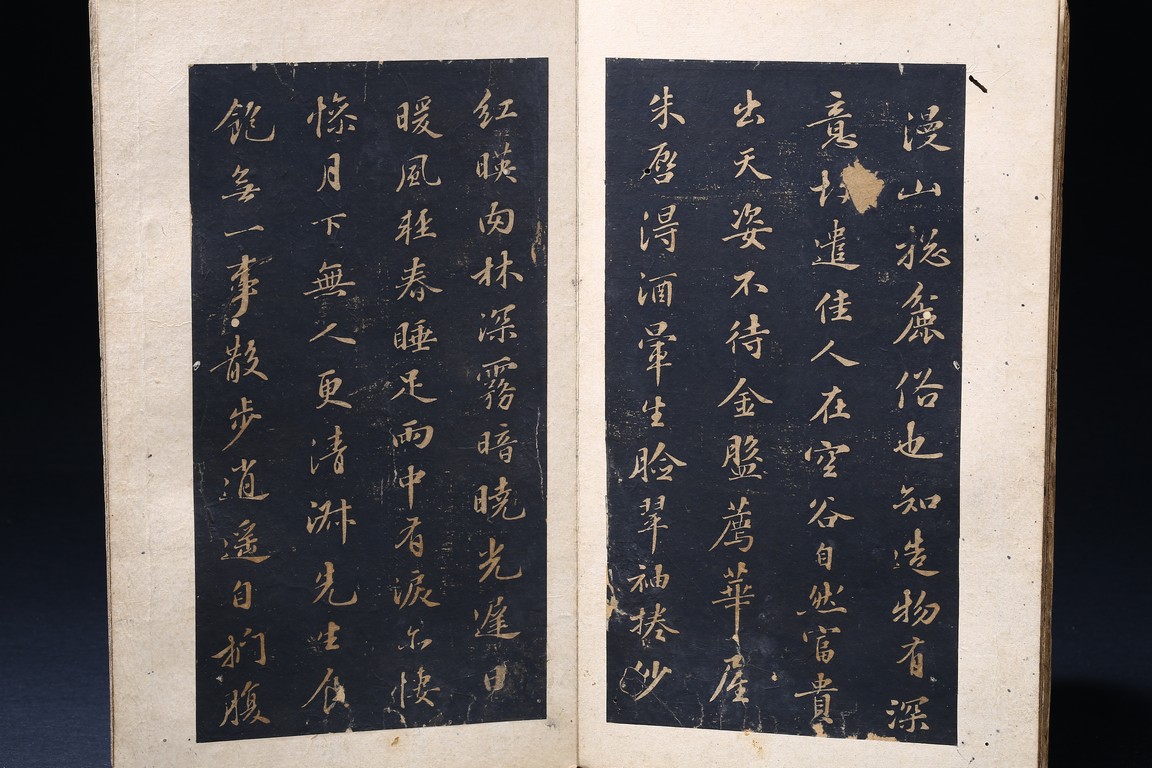 漫山捴麄俗也知造物有深
意故遣佳人在空谷自然富貴
出天姿不待金盤薦華屋
朱唇得酒暈生臉翠袖捲紗
紅暎肉林深霧暗曉光遲日
暖風輕春睡足雨中有淚亦悽
慘月下無人更清淑先生食
飽無一事散步逍遥自捫腹